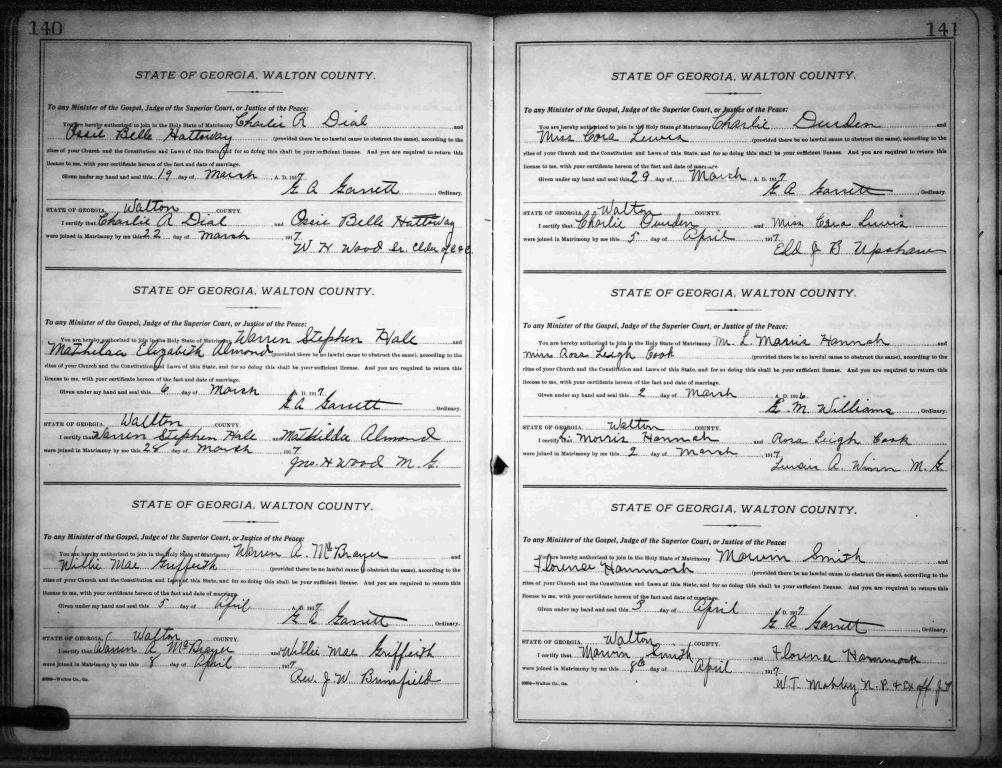 140
STATE OF GEORGIA, WALTON COUNTY.
To any Minister of the Gospel, Judge of the Superior Court, or Justice of the Peace:
You are hereby authorized to join in the Holy State of Matrimony Charlie A Dial and
Ossie Belle Hattoway (provided there be no lawful cause to obstruct the same), according to the
rites of your Church and the Constitution and Laws of this State, and for so doing this shall be your sufficient license. And you are required to return this
license to me, with your certificate hereon of the fact and date of marriage.
Given under my hand and seal this 19 day of March A. D. 1917
G A Garrett Ordinary.
STATE OF GEORGIA, Walton COUNTY.
I certify that Charlie A Dial and Ossie Belle Hattoway
were joined in Matrimony by me this 22 day of March 1917.
W H Wood Sr. Elder of
STATE OF GEORGIA, WALTON COUNTY.
To any Minister of the Gospel, Judge of the Superior Court, or Justice of the Peace:
You are hereby authorized to join in the Holy State of Matrimony Warren Stephen Hale and
Mathilda Elizabeth Almond (provided there be no lawful cause to obstruct the same), according to the
rites of your Church and the Constitution and Laws of this State, and for so doing this shall be your sufficient license. And you are required to return this
license to me, with your certificate hereon of the fact and date of marriage.
Given under my hand and seal this 6 day of March A. D. 1917
G A Garrett Ordinary.
STATE OF GEORGIA, Wallton COUNTY.
I certify that Warren Stephen Hale and Mathilda Almond
were joined in Matrimony by me this 28 day of March 1917
Jno. H Wood M. G.
STATE OF GEORGIA, WALTON COUNTY.
To any Minister of the Gospel, Judge of the Superior Court, or Justice of the Peace:
You are hereby authorized to join in the Holy State of Matrimony Warren A. McBrayer and
Willie Mae Griffeith (provided there be no lawful cause to obstruct the same), according to the
rites of your Church and the Constitution and Laws of this State, and for so doing this shall be your sufficient license. And you are required to return this
license to me, with your certificate hereon of the fact and date of marriage.
Given under my hand and seal this 5 day of April A. D. 1917
G A Garrett Ordinary.
STATE OF GEORGIA, Walton COUNTY.
I certify that Warren A McBrayer and Willie Mae Griffeith
were joined in Matrimony by me this 8 day of April 1917
Rev. J. W.
Walton Co., Ga.
141
STATE OF GEORGIA, WALTON COUNTY.
To any Minister of the Gospel, Judge of the Superior Court, or Justice of the Peace:
You are hereby authorized to join in the Holy State of Matrimony Charlie Durden and
Miss Cora Lewis (provided there be no lawful cause to obstruct the same), according to the
rites of your Church and the Constitution and Laws of this State, and for so doing this shall be your sufficient license. And you are required to return this
license to me, with your certificate hereon of the fact and date of marriage.
Given under my hand and seal this 29 day of March A. D. 1917
G A Garrett Ordinary.
STATE OF GEORGIA, Walton COUNTY.
I certify that Charlie Durden and Miss Cora Lewis
were joined in Matrimony by me this 5 day of April 1917
Eld. J B Upshaw
STATE OF GEORGIA, WALTON COUNTY.
To any Minister of the Gospel, Judge of the Superior Court, or Justice of the Peace:
You are hereby authorized to join in the Holy State of Matrimony M. L. Morris Hannah and
Miss Rosa Leigh Cook (provided there be no lawful cause to obstruct the same), according to the
rites of your Church and the Constitution and Laws of this State, and for so doing this shall be your sufficient license. And you are required to return this
license to me, with your certificate hereon of the fact and date of marriage.
Given under my hand and seal this 2 day of March A. D. 1916.
E. M. Williams Ordinary.
STATE OF GEORGIA, Walton COUNTY.
I certify that L. Morris Hannah and Rosa Leigh Cook
were joined in Matrimony by me this 2 day of March 1917
A. Winn M. G.
STATE OF GEORGIA, WALTON COUNTY.
To any Minister of the Gospel, Judge of the Superior Court, or Justice of the Peace:
You are hereby authorized to join in the Holy State of Matrimony Marvin Smith and
Florence Hammock (provided there be no lawful cause to obstruct the same), according to the
rites of your Church and the Constitution and Laws of this State, and for so doing this shall be your sufficient license. And you are required to return this
license to me, with your certificate hereon of the fact and date of marriage.
Given under my hand and seal this 3 day of April A. D. 1917
G A Garrett Ordinary.
STATE OF GEORGIA, Walton COUNTY.
I certify that Marvin Smith and Florence Hammock
were joined in Matrimony by me this 8th day of April 1917
W.T. Mobley N. P. & Ex off J P
Walton Co., Ga.